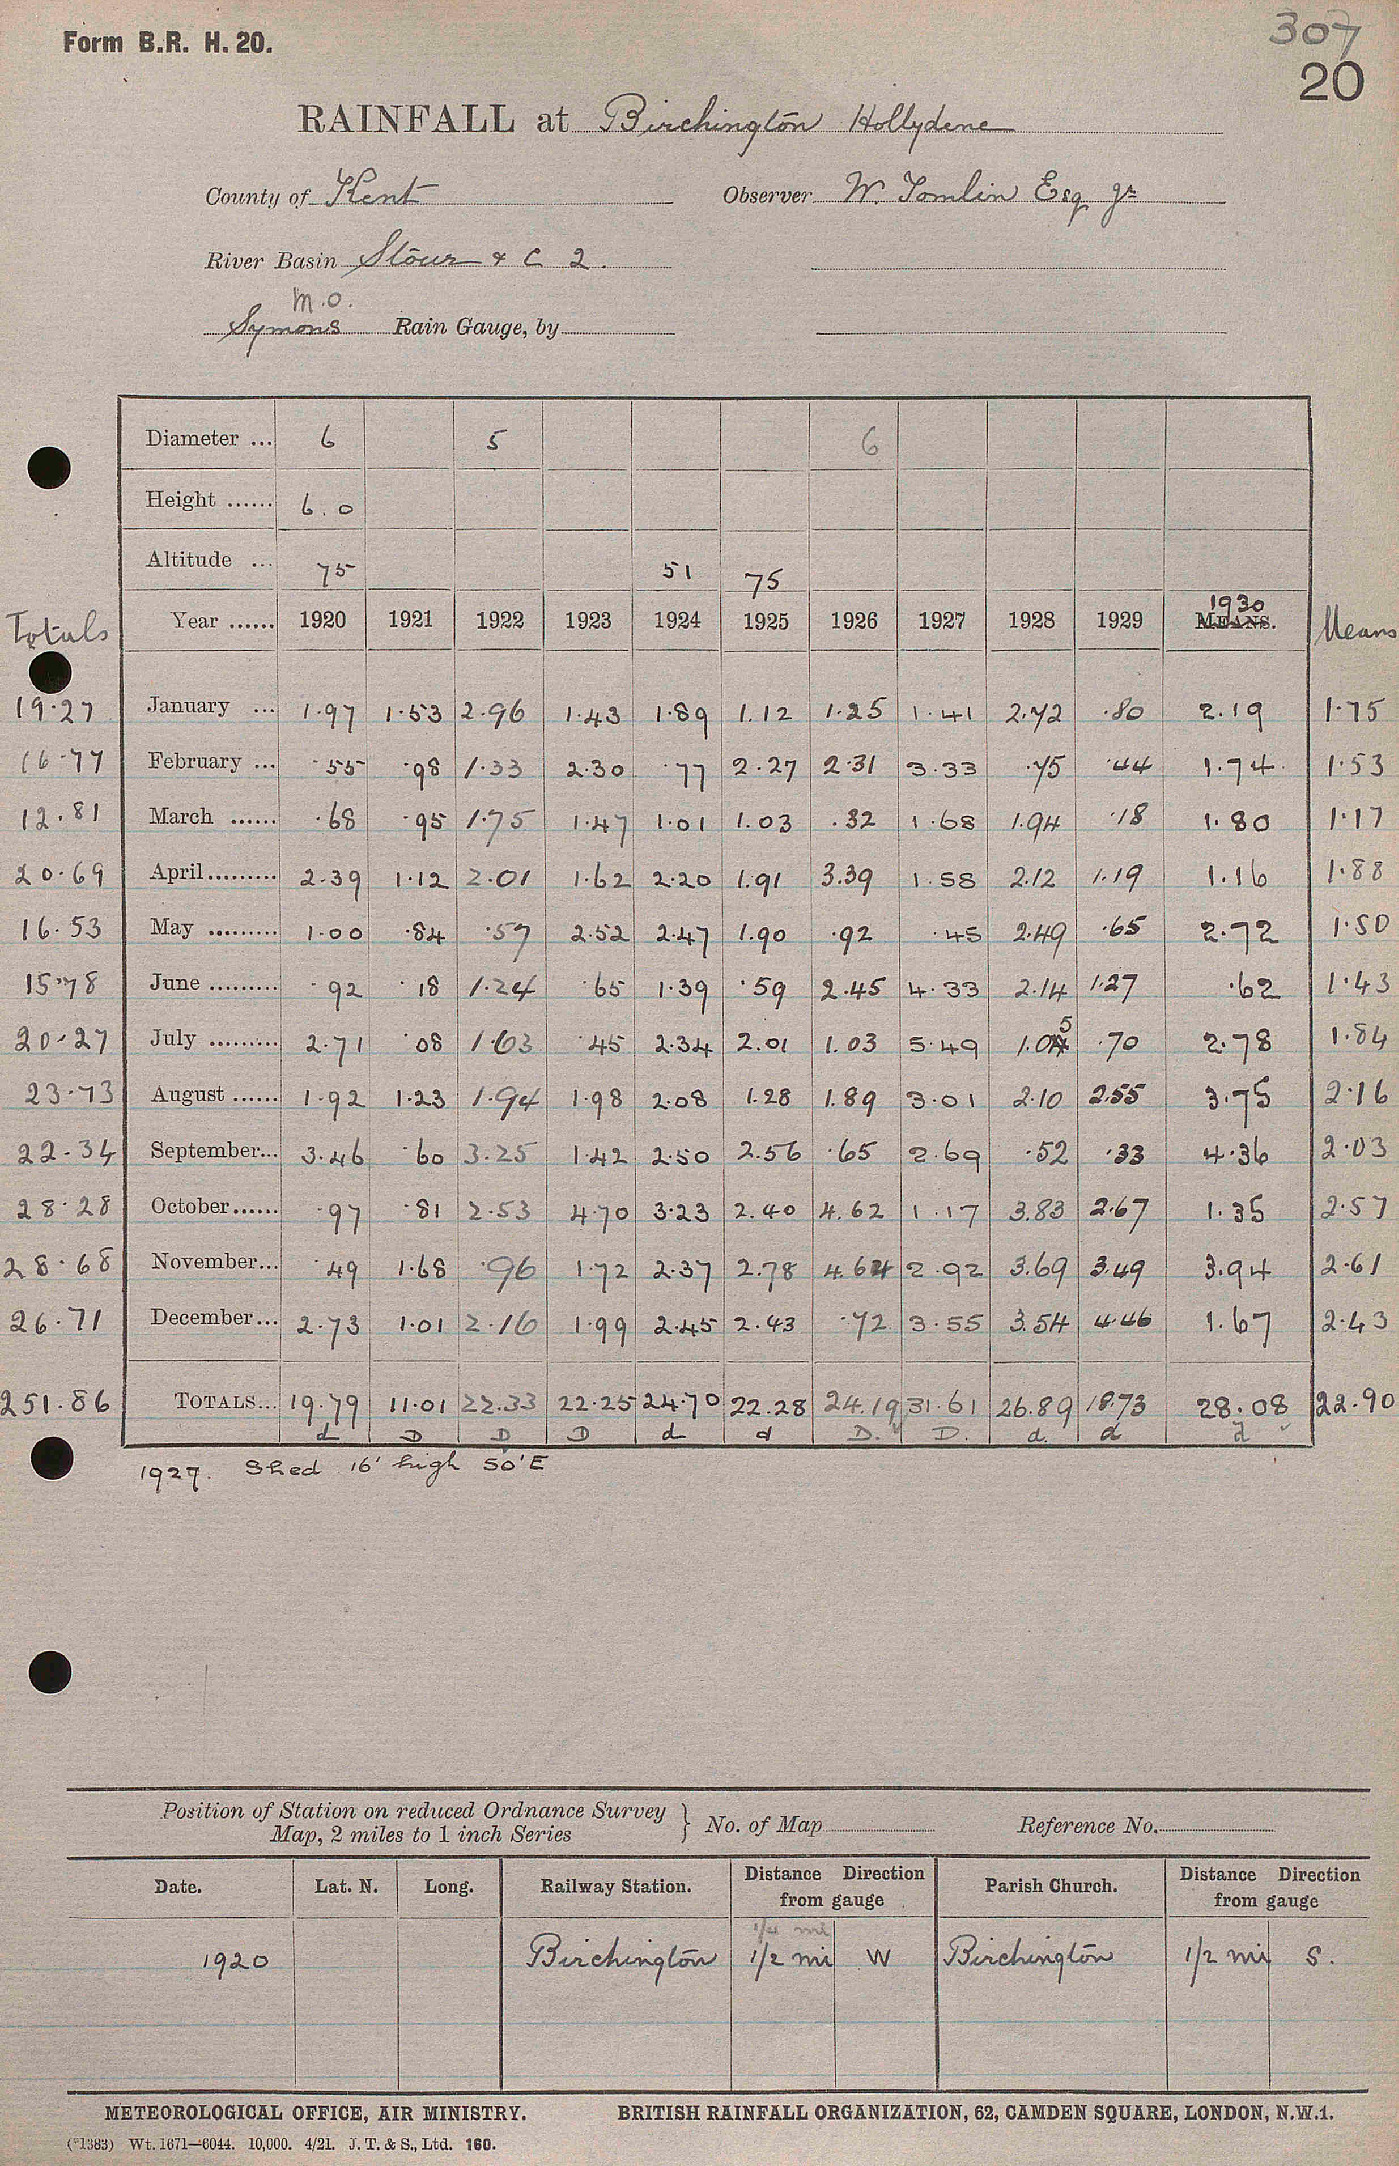 Form B.R. H. 20.
307
20
RAINFALL at Birchington Hollydene
County of Kent Observer W. Tomlin Esq Jr
River Basin Stour & C 2.
M.O.
Symons Rain Gauge, by
Diameter ... 6 5 6
Height ...... 6.0
Altitude ... 75 51 75
Totals Year ...... 1920 1921 1922 1923 1924 1925 1926 1927 1928 1929 1930 MEANS. Means
19.27 January ... 1.97 1.53 2.96 1.43 1.89 1.12 1.25 1.41 2.72 .80 2.19 1.75
16.77 February ... .55 .98 1.33 2.30 .77 2.27 2.31 3.33 .75 .44 1.74 1.53
12.81 March ...... .68 .95 1.75 1.47 1.01 1.03 .32 1.68 1.94 .18 1.80 1.17
20.69 April ......... 2.39 1.12 2.01 1.62 2.20 1.91 3.39 1.58 2.12 1.19 1.16 1.88
16.53 May ......... 1.00 .84 .57 2.52 2.47 1.90 .92 .45 2.49 .65 2.72 1.50
15.78 June ......... .92 .18 1.24 .65 1.39 .59 2.45 4.33 2.14 1.27 .62 1.43
20.27 July ......... 2.71 .08 1.63 .45 2.34 2.01 1.03 5.49 1.05 .70 2.78 1.84
23.73 August ...... 1.92 1.23 1.94 1.98 2.08 1.28 1.89 3.01 2.10 2.55 3.75 2.16
22.34 September... 3.46 .60 3.25 1.42 2.50 2.56 .65 2.69 .52 .33 4.36 2.03
28.28 October ...... .97 .81 2.53 4.70 3.23 2.40 4.62 1.17 3.83 2.67 1.35 2.57
28.68 November... .49 1.68 .96 1.72 2.37 2.78 4.64 2.92 3.69 3.49 3.94 2.61
26.71 December... 2.73 1.01 2.16 1.99 2.45 2.43 .72 3.55 3.54 4.46 1.67 2.43
251.86 TOTALS... 19.79 11.01 22.33 22.25 24.70 22.28 24.19 31.61 26.89 18.73 28.08 22.90
d D D D d d D. D. d. d d
1927. Shed 16' high 50'E
Position of Station on reduced Ordnance Survey
Map, 2 miles to 1 inch Series } No. of Map Reference No.
Date. Lat. N. Long. Railway Station. Distance Direction from gauge Parish Church. Distance Direction from gauge
1/4 mi
1920 Birchington 1/2 mi W Birchington 1/2 mi S.
METEOROLOGICAL OFFICE, AIR MINISTRY. BRITISH RAINFALL ORGANIZATION, 62, CAMDEN SQUARE, LONDON, N.W.1.
(*1383) Wt. 1671—6044. 10,000. 4/21. J. T. & S., Ltd. 160.